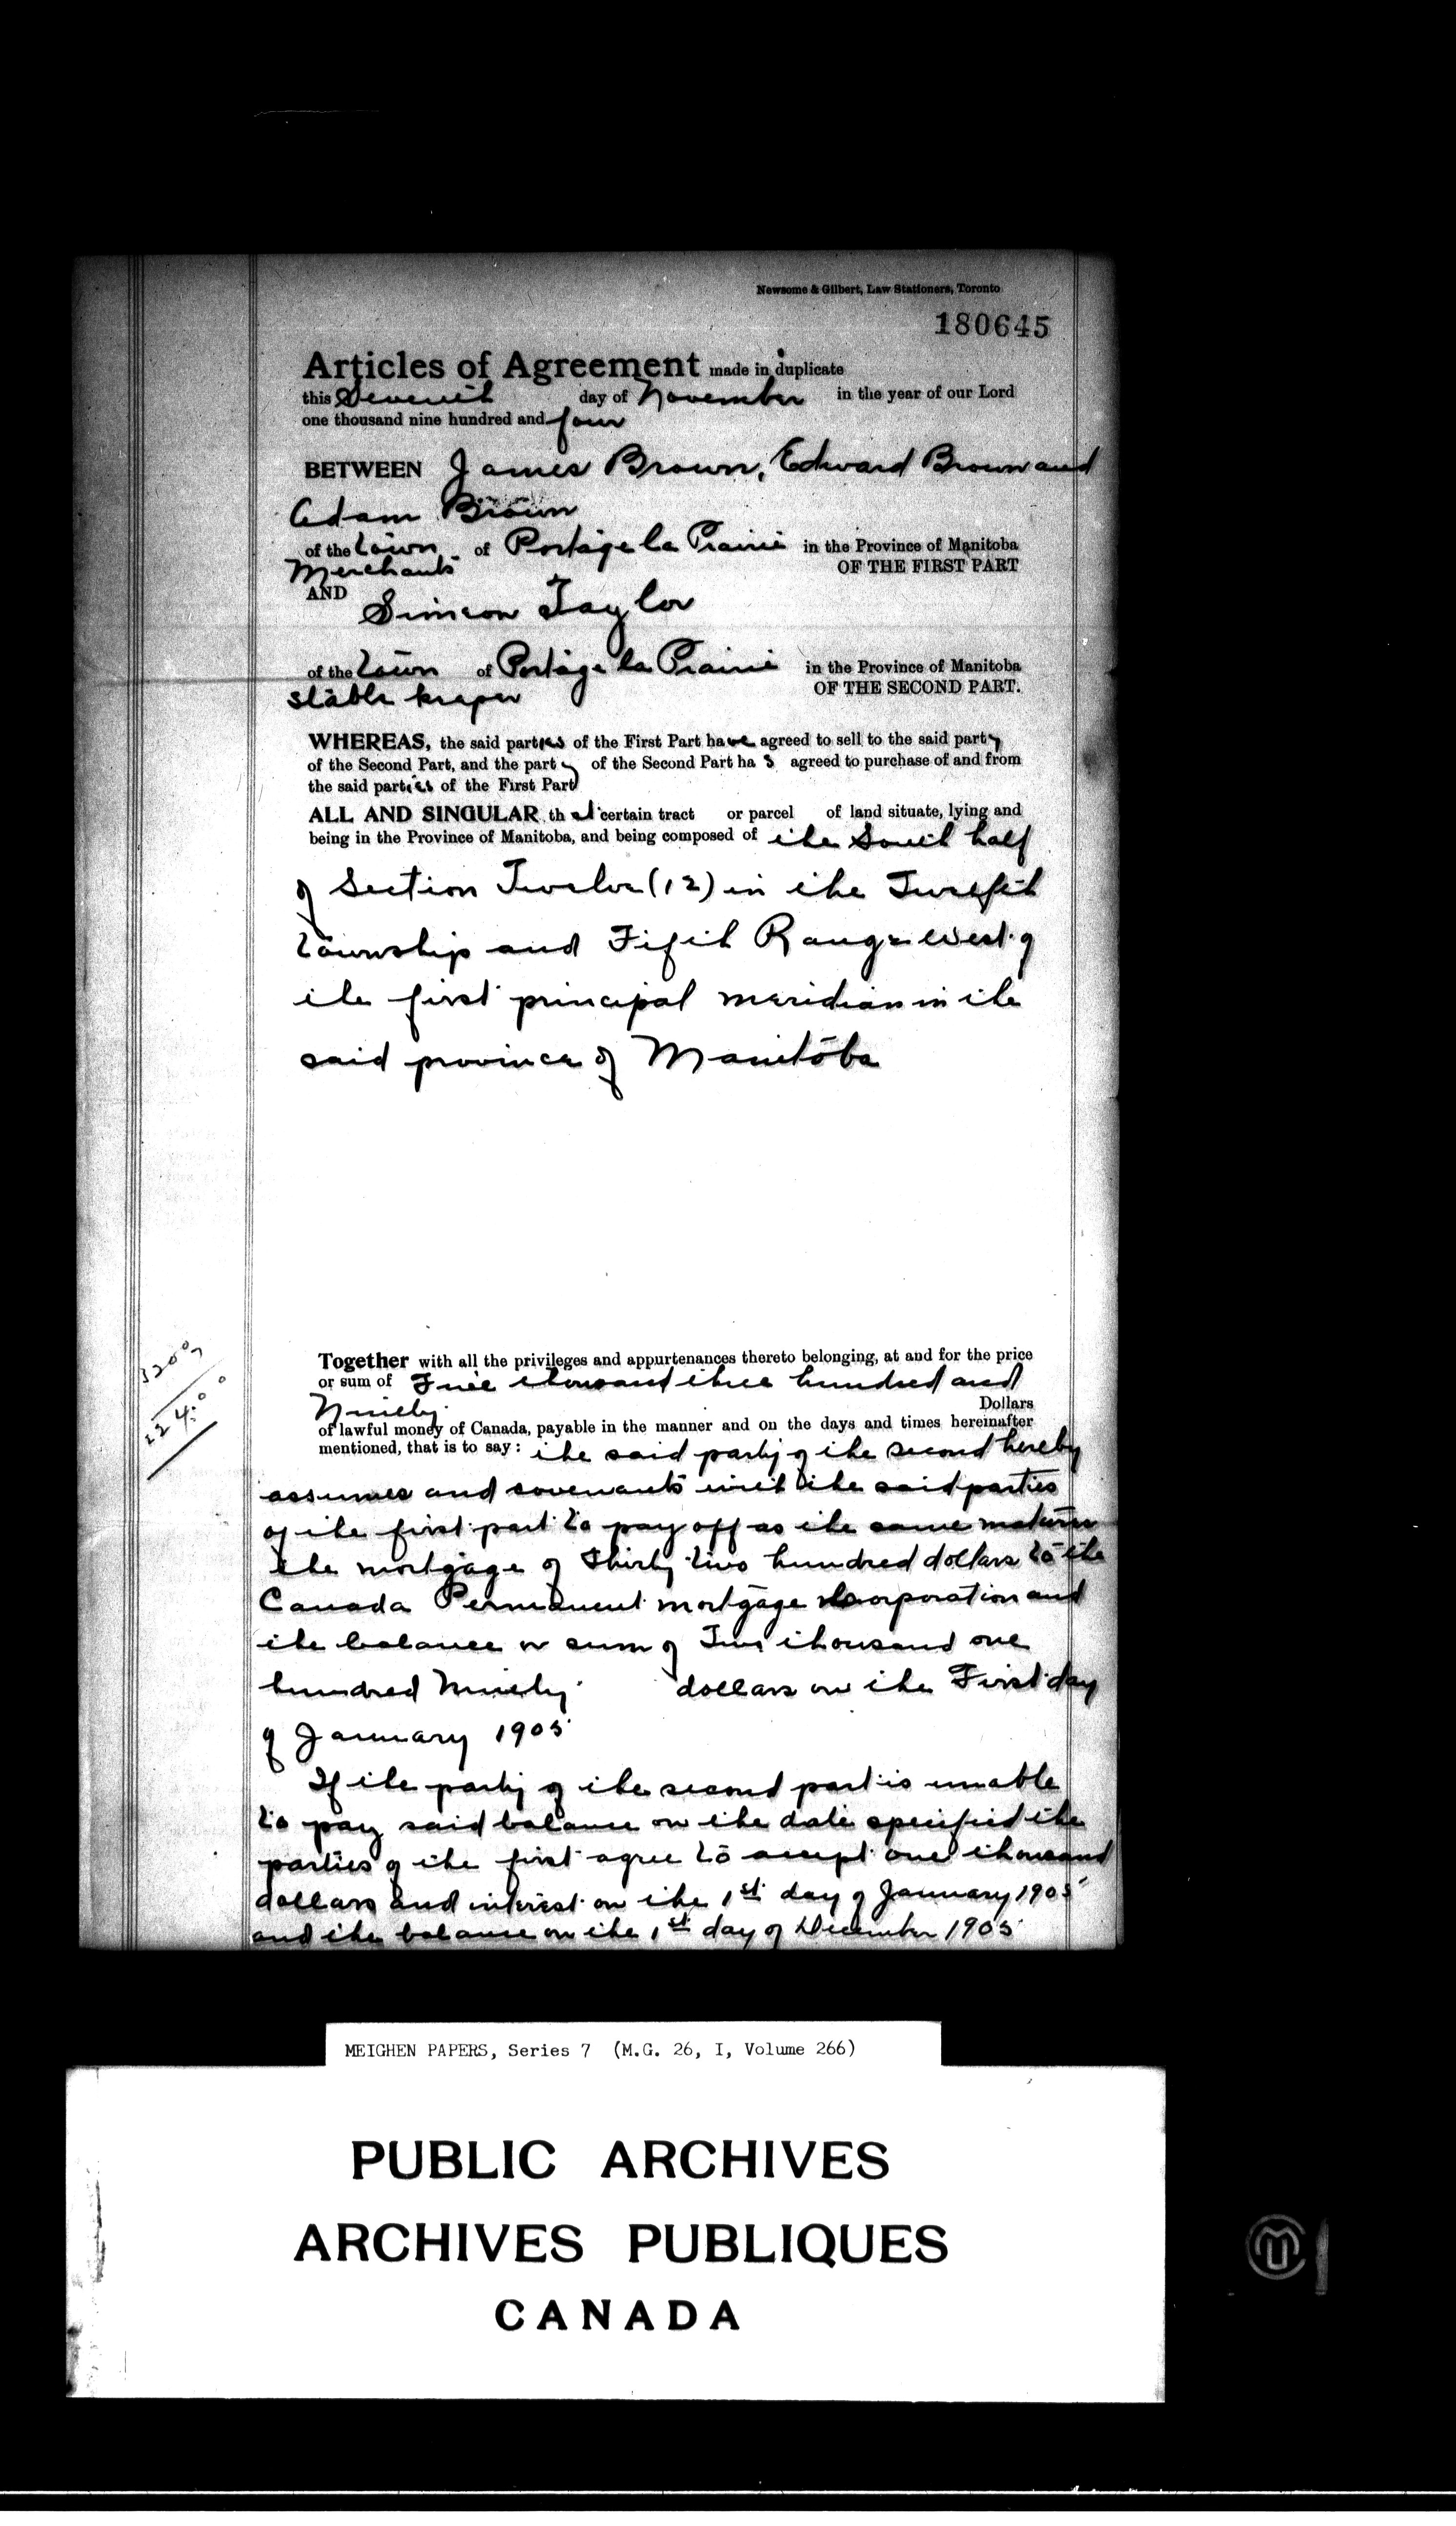 Newsome & Gilbert, Law Stationers, Toronto
180645
Articles of Agreement made in duplicate
this Seventh day of November in the year of our Lord
one thousand nine hundred and four
BETWEEN James Brown, Edward Brown and
Adam Brown
of the Town of Portage la Prairie in the Province of Manitoba
Merchants OF THE FIRST PART
AND
Simeon Taylor
of the Town of Portage la Prairie in the Province of Manitoba
stable keeper OF THE SECOND PART.
WHEREAS, the said parties of the First Part have agreed to sell to the said party
of the Second Part, and the party of the Second Part has agreed to purchase of and from
the said parties of the First Part
ALL AND SINGULAR that certain tract or parcel of land situate, lying and
being in the Province of Manitoba, and being composed of the South half
of Section Twelve (12) in the Twelfth
Township and Fifth Range West of
the first principal meridian in the
said province of Manitoba
Together with all the privileges and appurtenances thereto belonging, at and for the price
or sum of Five thousand three hundred and
Ninety Dollars
of lawful money of Canada, payable in the manner and on the days and times hereinafter
mentioned, that is to say: the said party of the second hereby
assumes and covenants with the said parties
of the first part to pay off as the same matures
the mortgage of Thirty two hundred dollars to the
Canada Permanent mortgage Corporation and
the balance or sum of Two thousand one
hundred Ninety dollars on the First day
of January 1905
If the party of the second part is unable
to pay said balance on the date specified the
parties of the first agree to accept one thousand
dollars and interest on the 1st day of January 1905
and the balance on the 1st day of December 1905
MEIGHEN PAPERS, Series 7 (M.G. 26, I, Volume 266)
PUBLIC ARCHIVES
ARCHIVES PUBLIQUES
CANADA